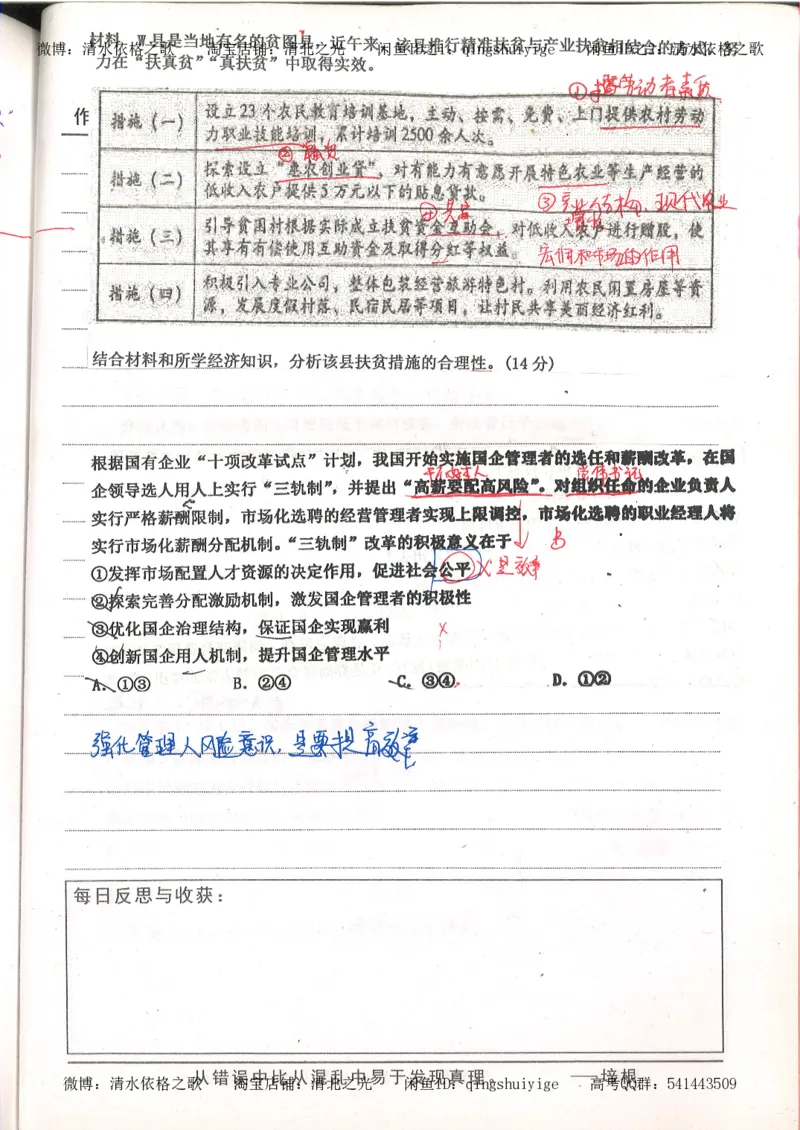 材料 W县是当地有名的贫困县，近年来，该县推行精准扶贫与产业扶贫相结合的方式，努
微博：清水依格之歌 淘宝店铺：清北之光 闲鱼ID1：qingshuiyige 闲鱼ID2：清水依格之歌
力在“扶真贫”“真扶贫”中取得实效。
①提劳动者素质
作
措施（一） 设立23个农民教育培训基地，主动、按需、免费、上门提供农村劳动
力职业技能培训，累计培训2500余人次。
② 融资
措施（二） 探索设立“惠农创业贷”，对有能力有意愿开展特色农业等生产经营的
低收入农户提供5万元以下的贴息贷款。
③产业结构、现代农业
④共富
措施（三） 引导贫困村根据实际成立扶贫资金互助会，对低收入农户进行赠股，使
其享有有偿使用互助资金及取得分红等权益。
宏调和市场的作用
措施（四） 积极引入专业公司，整体包装经营旅游特色村。利用农民闲置房屋等资
源，发展度假村落、民宿民居等项目，让村民共享美丽经济红利。
结合材料和所学经济知识，分析该县扶贫措施的合理性。(14分)
根据国有企业“十项改革试点”计划，我国开始实施国企管理者的选任和薪酬改革，在国
企领导选人用人上实行“三轨制”，并提出“高薪要配高风险”。对组织任命的企业负责人
实行严格薪酬限制，市场化选聘的经营管理者实现上限调控，市场化选聘的职业经理人将
实行市场化薪酬分配机制。“三轨制”改革的积极意义在于
B
①发挥市场配置人才资源的决定作用，促进社会公平 ×是效率
②探索完善分配激励机制，激发国企管理者的积极性
③优化国企治理结构，保证国企实现赢利 ×
④创新国企用人机制，提升国企管理水平
A．①③ B．②④ C．③④ D．①②
强化管理人风险意识，是要提高效率
每日反思与收获：
从错误中比从混乱中易于发现真理 ——培根
微博：清水依格之歌 淘宝店铺：清北之光 闲鱼ID：qingshuiyige 高考QQ群：541443509